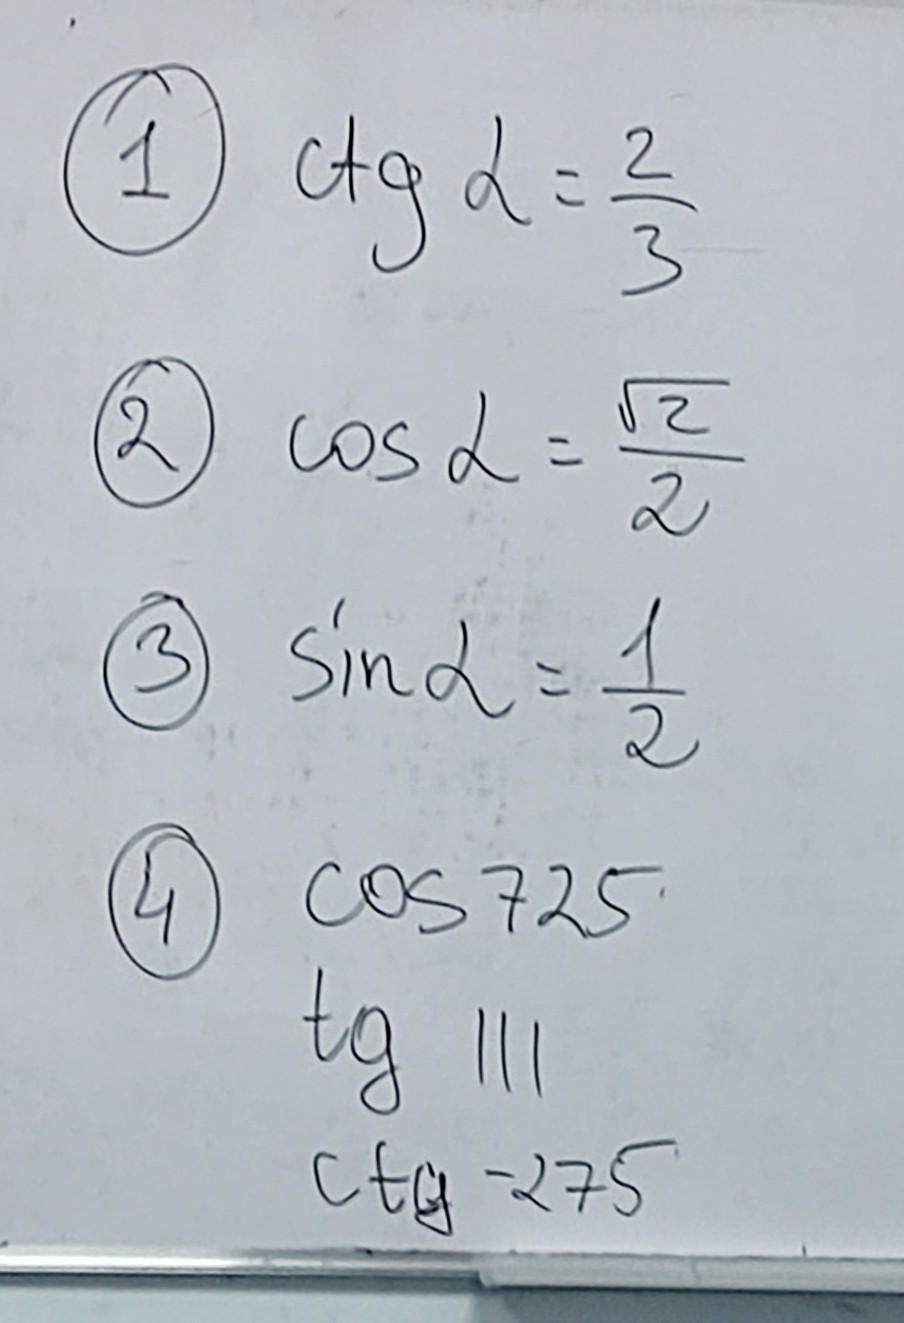 ① ctg α = 2/3
② cos α = √2/2
③ sin α = 1/2
④ cos 725
tg 111
ctg -275